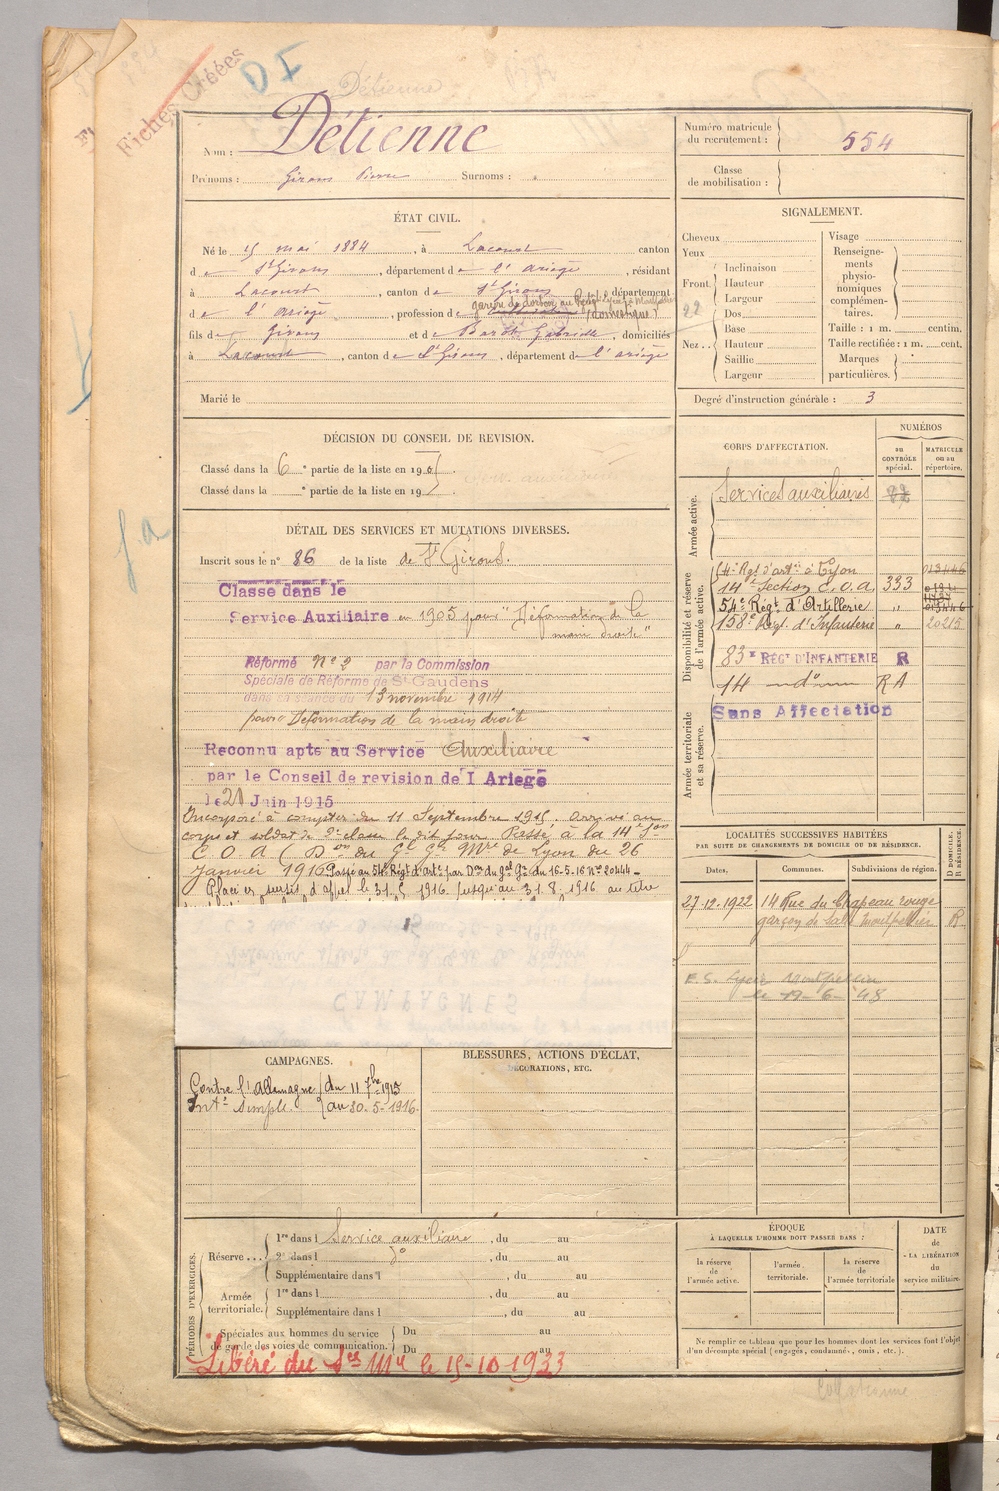 Fiches Créées
D I
Détienne
Nom : Détienne
Prénoms : Girons Pierre Surnoms : 
Numéro matricule du recrutement : 554
Classe de mobilisation :
ÉTAT CIVIL.
Né le 15 mai 1884, à Lacourt canton
de St Girons, département de l'ariège, résidant
à Lacourt, canton de St Girons, département
de l'ariège, profession de (domestique)
fils de Girons et de Gabrielle, domiciliés
à Lacourt, canton de St Girons, département de l'ariège
Marié le
SIGNALEMENT.
Cheveux
Yeux
Front. Inclinaison
Hauteur
Largeur
Nez . . Dos
Base
Hauteur
Saillie
Largeur
Visage
Renseignements physionomiques complémentaires.
Taille : 1 m. centim.
Taille rectifiée : 1 m. cent.
Marques particulières.
Degré d'instruction générale : 3
DÉCISION DU CONSEIL DE REVISION.
Classé dans la 6e partie de la liste en 190
Classé dans la e partie de la liste en 19
DÉTAIL DES SERVICES ET MUTATIONS DIVERSES.
Inscrit sous le n° 86 de la liste de St Girons.
Classé dans le
Service Auxiliaire en 1905 pour "Déformation de la
main droite"
Réformé N° 2 par la Commission
Spéciale de Réforme de St Gaudens
dans sa séance du 13 novembre 1914
pour Déformation de la main droite
Reconnu apte au Service Auxiliaire
par le Conseil de revision de l Ariege
le 21 Juin 1915
Incorporé à compter du 11 Septembre 1915. Arrivé au
corps et soldat de 2e classe le dit jour. Passé à la 14e Son
C. O. A (Don du Gl Gr Mre de Lyon du 26
janvier 1916 Passé au 54e Régt d'artie par Don du gal Gr du 16-5-16 N° 20444 -
Placé en sursis d'appel le 31.5.1916. jusqu'au 31.8.1916 au titre
CORPS D'AFFECTATION.
NUMÉROS
au CONTRÔLE spécial.
MATRICULE ou au répertoire.
Armée active.
Services auxiliaires
Disponibilité et réserve de l'armée active.
Régt d'artie à Lyon
14e Section C. O. A. 333
54e Régt d'Artillerie "
158e Régt d'Infanterie " 20215
83e RÉGt D'INFANTERIE R
14 — do — R A
Armée territoriale et sa réserve.
Sans Affectation
LOCALITÉS SUCCESSIVES HABITÉES
PAR SUITE DE CHANGEMENTS DE DOMICILE OU DE RÉSIDENCE.
Dates. Communes. Subdivisions de région. D DOMICILE. R RÉSIDENCE.
27-12-1922 14 Rue du Chapeau rouge
garçon de salle Montpellier R
E.S. Lycée Montpellier
le 19-6-48
CAMPAGNES.
Contre l'Allemagne du 11 7bre 1915
Intr simple. au 30-5-1916
BLESSURES, ACTIONS D'ÉCLAT,
DÉCORATIONS, ETC.
PÉRIODES D'EXERCICES.
Réserve . . . 1re dans l Service auxiliaire, du au
2e dans l do, du au
Supplémentaire dans l , du au
Armée territoriale. 1re dans l , du au
Supplémentaire dans l , du au
Spéciales aux hommes du service Du au
de garde des voies de communication. Du au
Libéré du Sce Mre le 15-10-1933
ÉPOQUE
À LAQUELLE L'HOMME DOIT PASSER DANS :
la réserve de l'armée active.
l'armée territoriale.
la réserve de l'armée territoriale
DATE de LA LIBÉRATION du service militaire.
Ne remplir ce tableau que pour les hommes dont les services font l'objet
d'un décompte spécial (engagés, condamné, omis, etc.).